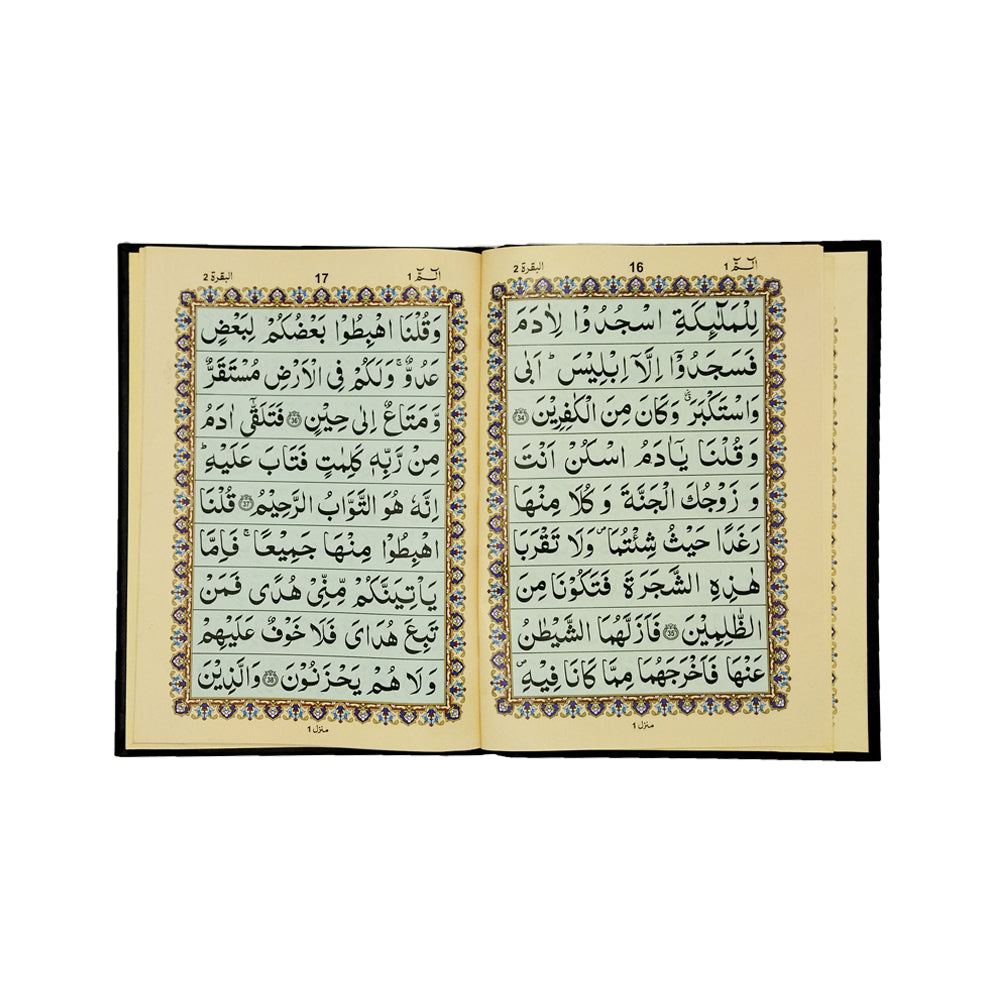 الٓـمّٓ 1 16 البقرة 2
لِلْمَلٰٓئِكَةِ اسْجُدُوْا لِاٰدَمَ
فَسَجَدُوْٓا اِلَّآ اِبْلِيْسَ ؕ اَبٰى
وَاسْتَكْبَرَ ٭ۗ وَكَانَ مِنَ الْكٰفِرِيْنَ 34
وَقُلْنَا يٰٓاٰدَمُ اسْكُنْ اَنْتَ
وَ زَوْجُكَ الْجَنَّةَ وَ كُلَا مِنْهَا
رَغَدًا حَيْثُ شِئْتُمَا ۪ وَلَا تَقْرَبَا
هٰذِهِ الشَّجَرَةَ فَتَكُوْنَا مِنَ
الظّٰلِمِيْنَ 35 فَاَزَلَّهُمَا الشَّيْطٰنُ
عَنْهَا فَاَخْرَجَهُمَا مِمَّا كَانَا فِيْهِ ۪
منزل 1
الٓـمّٓ 1 17 البقرة 2
وَقُلْنَا اهْبِطُوْا بَعْضُكُمْ لِبَعْضٍ
عَدُوٌّ ۚ وَلَكُمْ فِى الْاَرْضِ مُسْتَقَرٌّ
وَّمَتَاعٌ اِلٰى حِيْنٍ 36 فَتَلَقّٰٓى اٰدَمُ
مِنْ رَّبِّهٖ كَلِمٰتٍ فَتَابَ عَلَيْهِ ؕ
اِنَّهٗ هُوَ التَّوَّابُ الرَّحِيْمُ 37 قُلْنَا
اهْبِطُوْا مِنْهَا جَمِيْعًا ۚ فَاِمَّا
يَاْتِيَنَّكُمْ مِّنِّىْ هُدًى فَمَنْ
تَبِعَ هُدَاىَ فَلَا خَوْفٌ عَلَيْهِمْ
وَلَا هُمْ يَحْزَنُوْنَ 38 وَالَّذِيْنَ
منزل 1